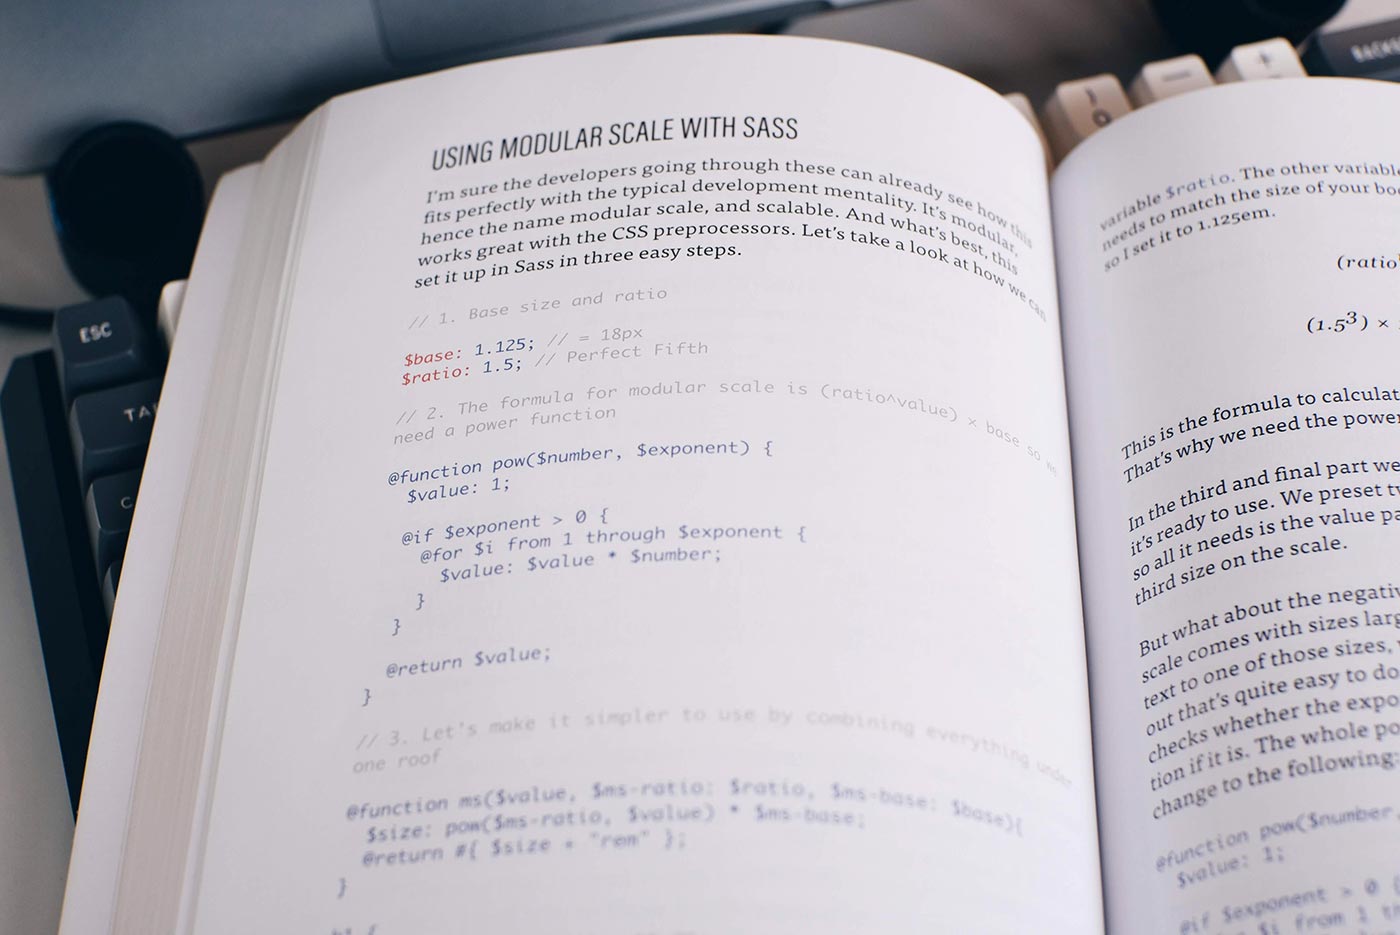 BACKS
+
ESC
TA
C
USING MODULAR SCALE WITH SASS
I'm sure the developers going through these can already see how this
fits perfectly with the typical development mentality. It's modular,
hence the name modular scale, and scalable. And what's best, this
works great with the CSS preprocessors. Let's take a look at how we can
set it up in Sass in three easy steps.
// 1. Base size and ratio
$base: 1.125; // = 18px
$ratio: 1.5; // Perfect Fifth
// 2. The formula for modular scale is (ratio^value) × base so we
need a power function
@function pow($number, $exponent) {
$value: 1;
@if $exponent > 0 {
@for $i from 1 through $exponent {
$value: $value * $number;
}
}
@return $value;
}
// 3. Let's make it simpler to use by combining everything under
one roof
@function ms($value, $ms-ratio: $ratio, $ms-base: $base){
$size: pow($ms-ratio, $value) * $ms-base;
@return #{ $size + "rem" };
}
variable $ratio. The other variable
needs to match the size of your bo
so I set it to 1.125em.
(ratio
(1.5³) ×
This is the formula to calculat
That's why we need the power
In the third and final part we
it's ready to use. We preset t
so all it needs is the value pa
third size on the scale.
But what about the negativ
scale comes with sizes larg
text to one of those sizes,
out that's quite easy to do
checks whether the expo
tion if it is. The whole po
change to the following:
@function pow($number,
$value: 1;
@if $exponent > 0 {
from 1 th